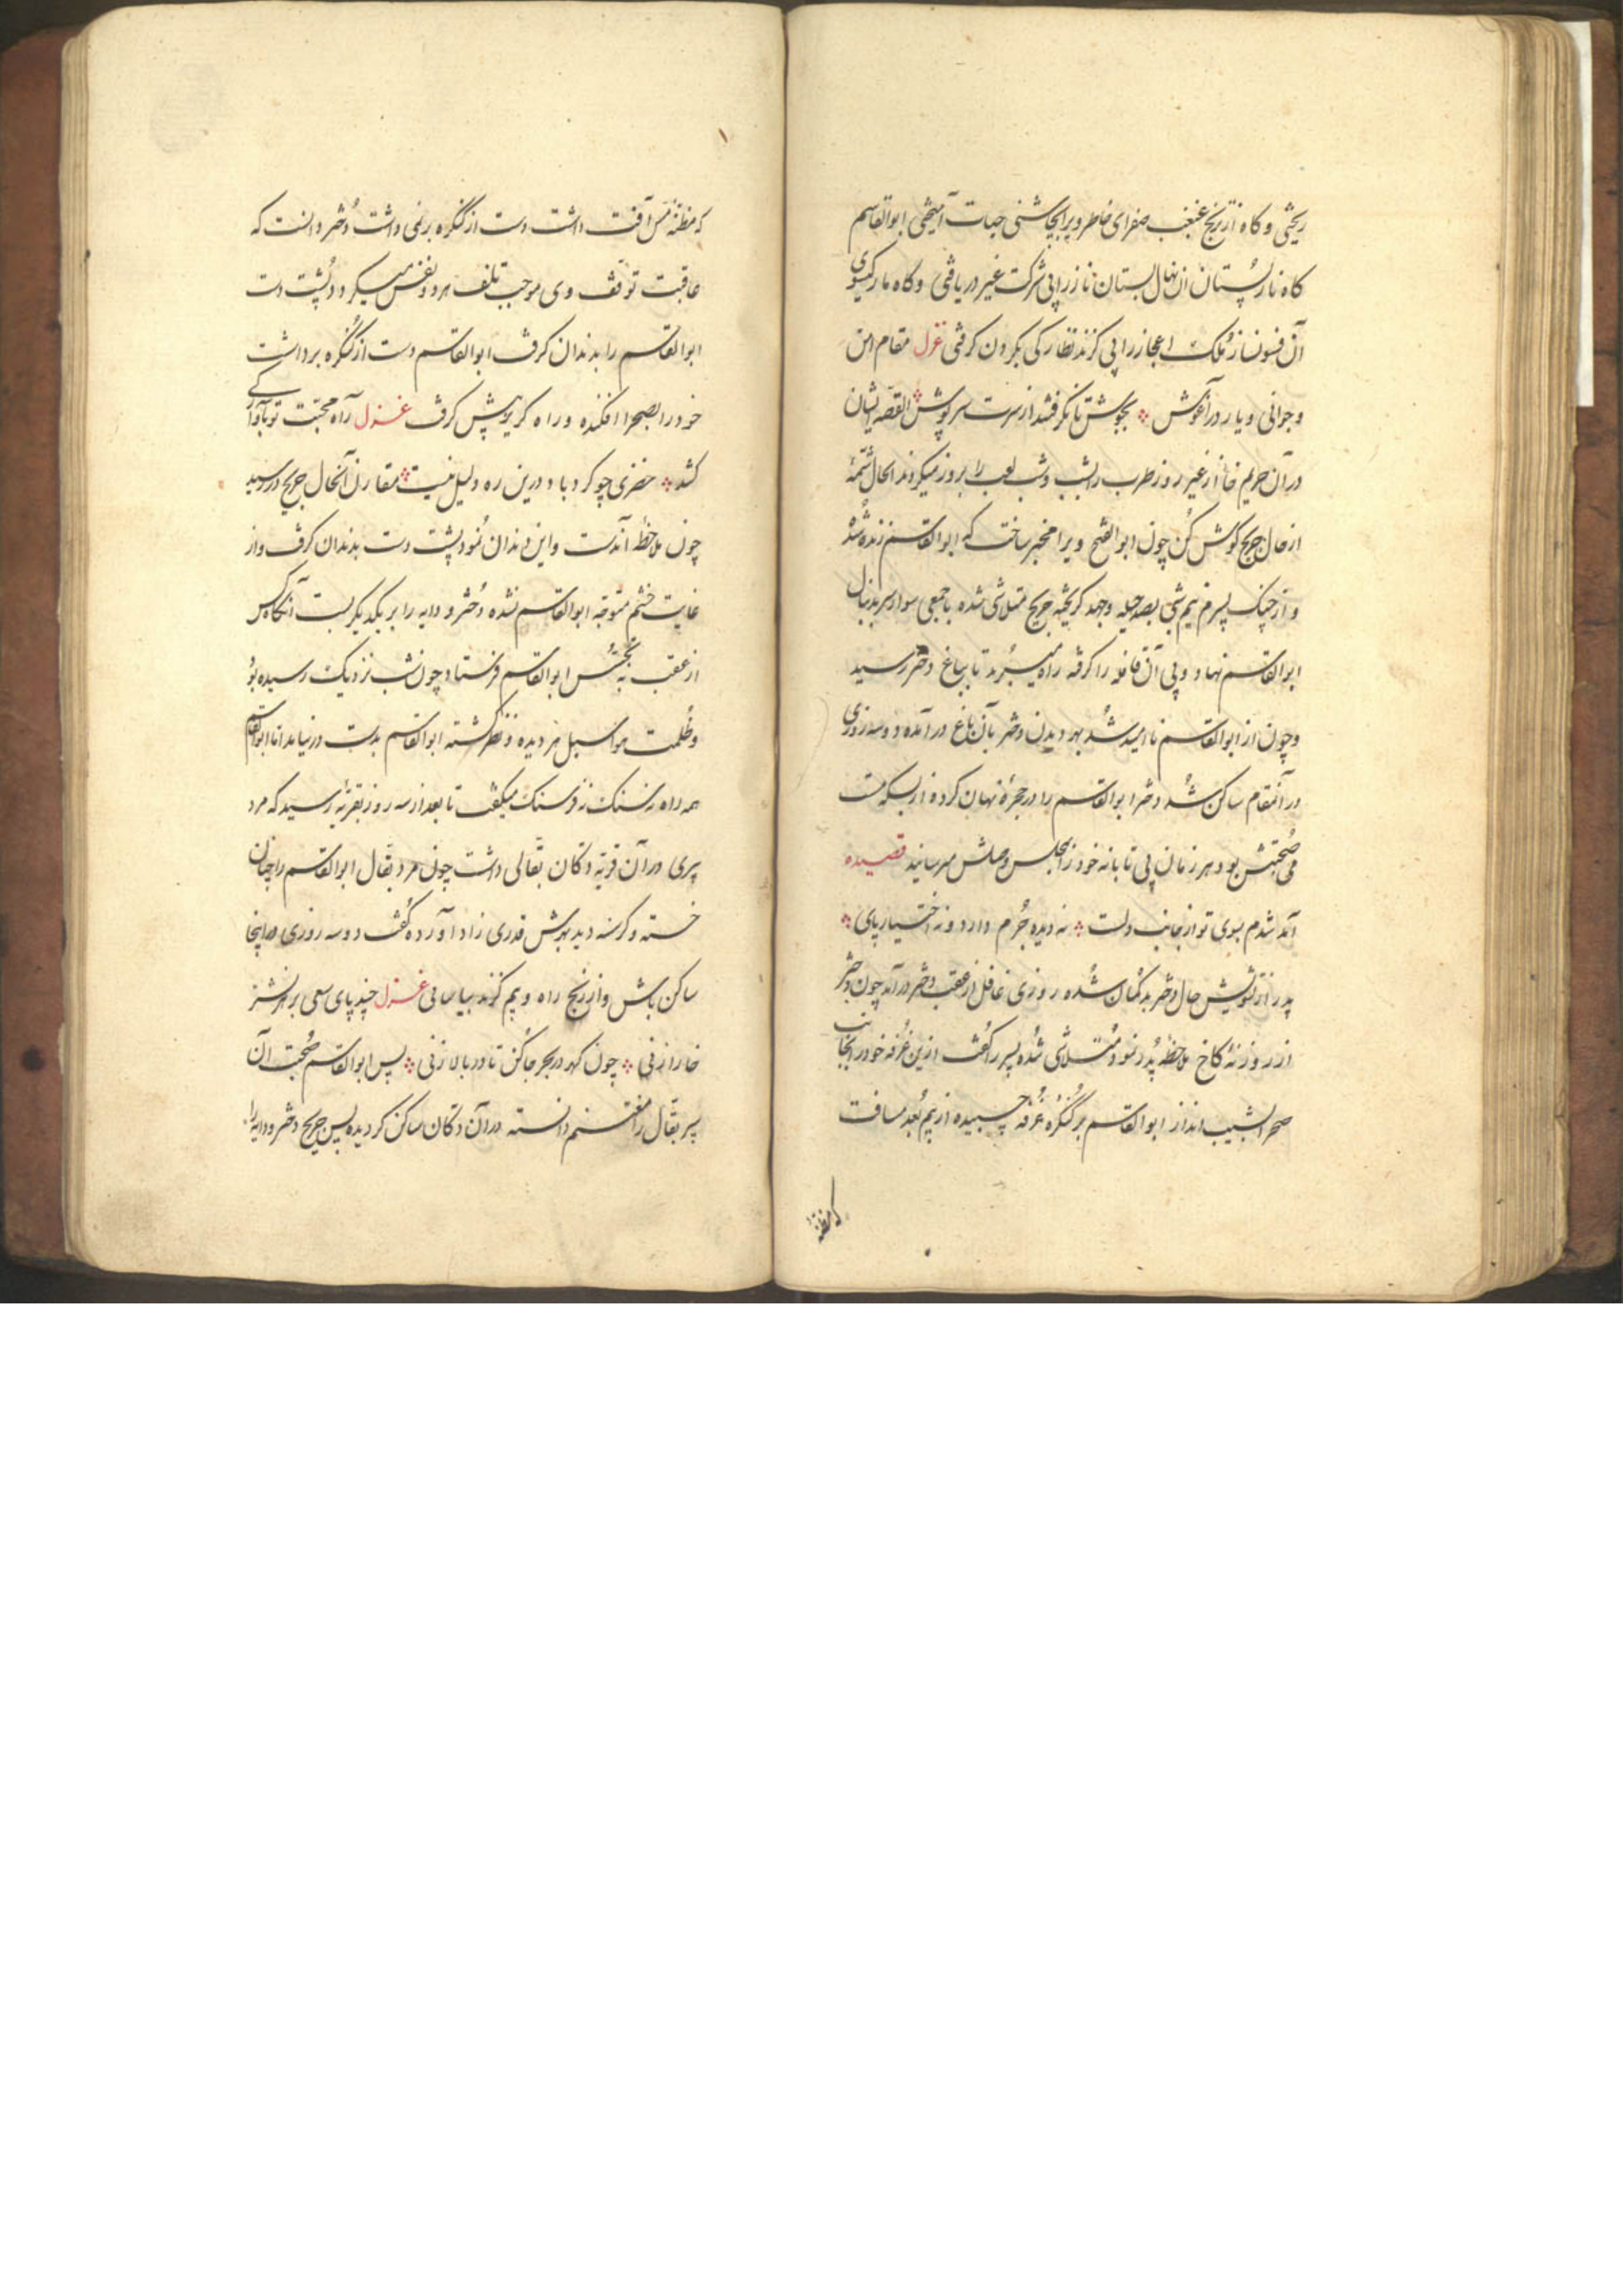 ریختی و کاه از ترنج غبغب صفرای خاطر ویرا بچاشنی حیات آمیختی ابوالقاسم
کاه نار پستان آن نهال بستان ناز را بی شرکت غیر دریافتی و کاه مار کیسوی
آن فسونساز ملک اعجاز را بی کزند نظارکی بکردن کرفتی غزل مقام امن
و جوانی و یار در آغوش بجوش تا نکر فتد از سرت سرپوش القصه ایشان
در آن حریم خانه از غیر روز طرب را بشب و شب لعب را بروز میکردند الحال شمهٔ
از حال جریح کوش کن چون ابوالفتح ویرا مخبر ساخت که ابوالقاسم زنده شد
و از چنک پسرم نیم شبی بصد حیله و جهد کریخته جریح متلاشی شده با جمعی سوار سر بدنبال
ابوالقاسم نهاد و پی آن قافله را کرفته راه میبرند تا بباغ دختر رسید
و چون از ابوالقاسم ناامید شد بهر دیدن دختر بآن باغ در آمده دو سه روزی
در آنمقام ساکن شد دختر ابوالقاسم را در حجرهٔ نهان کرده از بسکه مست
می صحبتش بود هر زمان بی تابانه خود را بمجلس وصلش میرسانید قصیده
آمد شدم بسوی تو از بجانب دلست نه دیده جرم دارد و نه اختیار پای
پدر از تشویش حال دختر بدکمان شده روزی غافل از عقب دختر در آمد چون دختر
از روزنهٔ کاخ ملاحظه پدر نمود متلاشی شده پسر را کفت ازین غرفه خود را بجانب
صحرا بشیب انداز ابوالقاسم بر کنکره غرفه چسبیده از بیم بعد مسافت
که مظنه
که مظنه آفت داشت دست از کنکره بر نمی داشت دختر دانست که
عاقبت توقف وی موجب تلف هر دو نفس میکردد پشت دست
ابوالقاسم را بدندان کرفت ابوالقاسم دست از کنکره برداشت
خود را بصحرا افکنده و راه کریز پیش کرفت غزل راه محبت تو بآوارکی
کشد خضری چو کردباد درین ره دلیل نیست مقارن آنحال جریح در رسید
چون ملاحظه آندست و این دندان نمود پشت دست بدندان کرفت و از
غایت خشم متوجه ابوالقاسم نشده دختر و دایه را بر یکدیکر بست آنکاه کس
از عقب به تجسس ابوالقاسم فرستاد چون شب نزدیک رسیده بود
و ظلمت هوا سبل هر دیده و نظر کشته ابوالقاسم بدست در نیامد اما ابوالقاسم
همه راه نه سنک نه فرسنک میکفت تا بعد از سه روز بقریهٔ رسید که مرد
پیری در آن قریه دکان بقالی داشت چون مرد بقال ابوالقاسم را چنان
خسته و کرسنه دید بهرش قدری زاد آورده کفت دو سه روزی در اینجا
ساکن باش و از رنج راه و بیم کزند بیاسای غزل چند پای سعی بر نشتر
خارا زنی چون کهر در بحر جا کن تا در بالا زنی پس ابوالقاسم صحبت آن
پیر بقال را مغتنم دانسته در آن دکان ساکن کردیده پس جریح دختر و دایه را